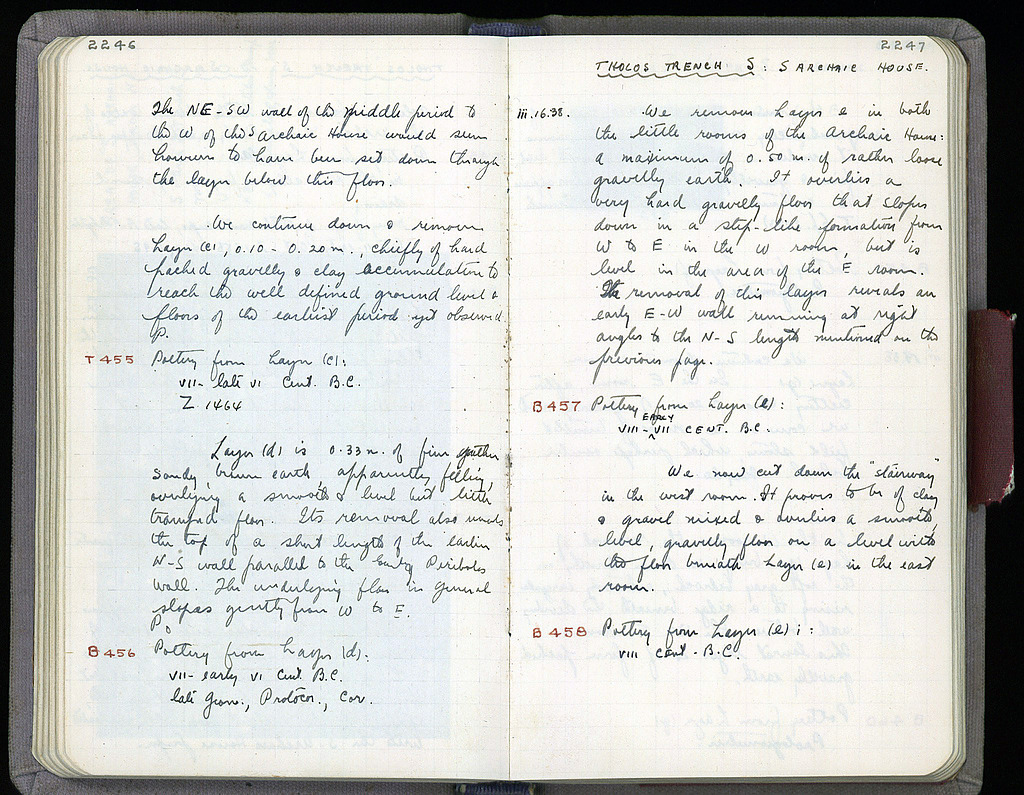 2246
The NE-SW wall of the middle period to
the W of the S Archaic House would seem
however to have been set down through
the layer below this floor.
We continue down & remove
Layer (c), 0.10 - 0.20 m., chiefly of hard
packed gravelly & clay accumulation to
reach the well defined ground level &
floors of the earliest period yet observed.
P.
T 455 Pottery from Layer (c):
VII - late VI Cent. B.C.
Z 1464
Layer (d) is 0.33 m. of fine rather
sandy, brown earth, apparently filling,
overlying a smooth & level but little
tramped floor. Its removal also reveals
the top of a short length of the earlier
N-S wall parallel to the Early Peribolos
Wall. The underlying floor in general
slopes gently from W to E.
P.
B 456 Pottery from Layer (d):
VII - early VI Cent. B.C.
late Geom., Protocor., Cor.
2247
THOLOS TRENCH S: S ARCHAIC HOUSE.
III.16.38. We remove Layer e in both
the little rooms of the Archaic House:
a maximum of 0.50 m. of rather loose
gravelly earth. It overlies a
very hard gravelly floor that slopes
down in a step-like formation from
W to E in the W room, but is
level in the area of the E room.
The removal of this layer reveals an
early E-W wall running at right
angles to the N-S length mentioned on the
previous page.
B 457 Pottery from Layer (e):
VIII - EARLY VII CENT. B.C.
We now cut down the "stairway"
in the west room. It proves to be of clay
& gravel mixed & overlies a smooth,
level, gravelly floor on a level with
the floor beneath Layer (e) in the east
room.
B 458 Pottery from Layer (e) i:
VIII cent. B.C.